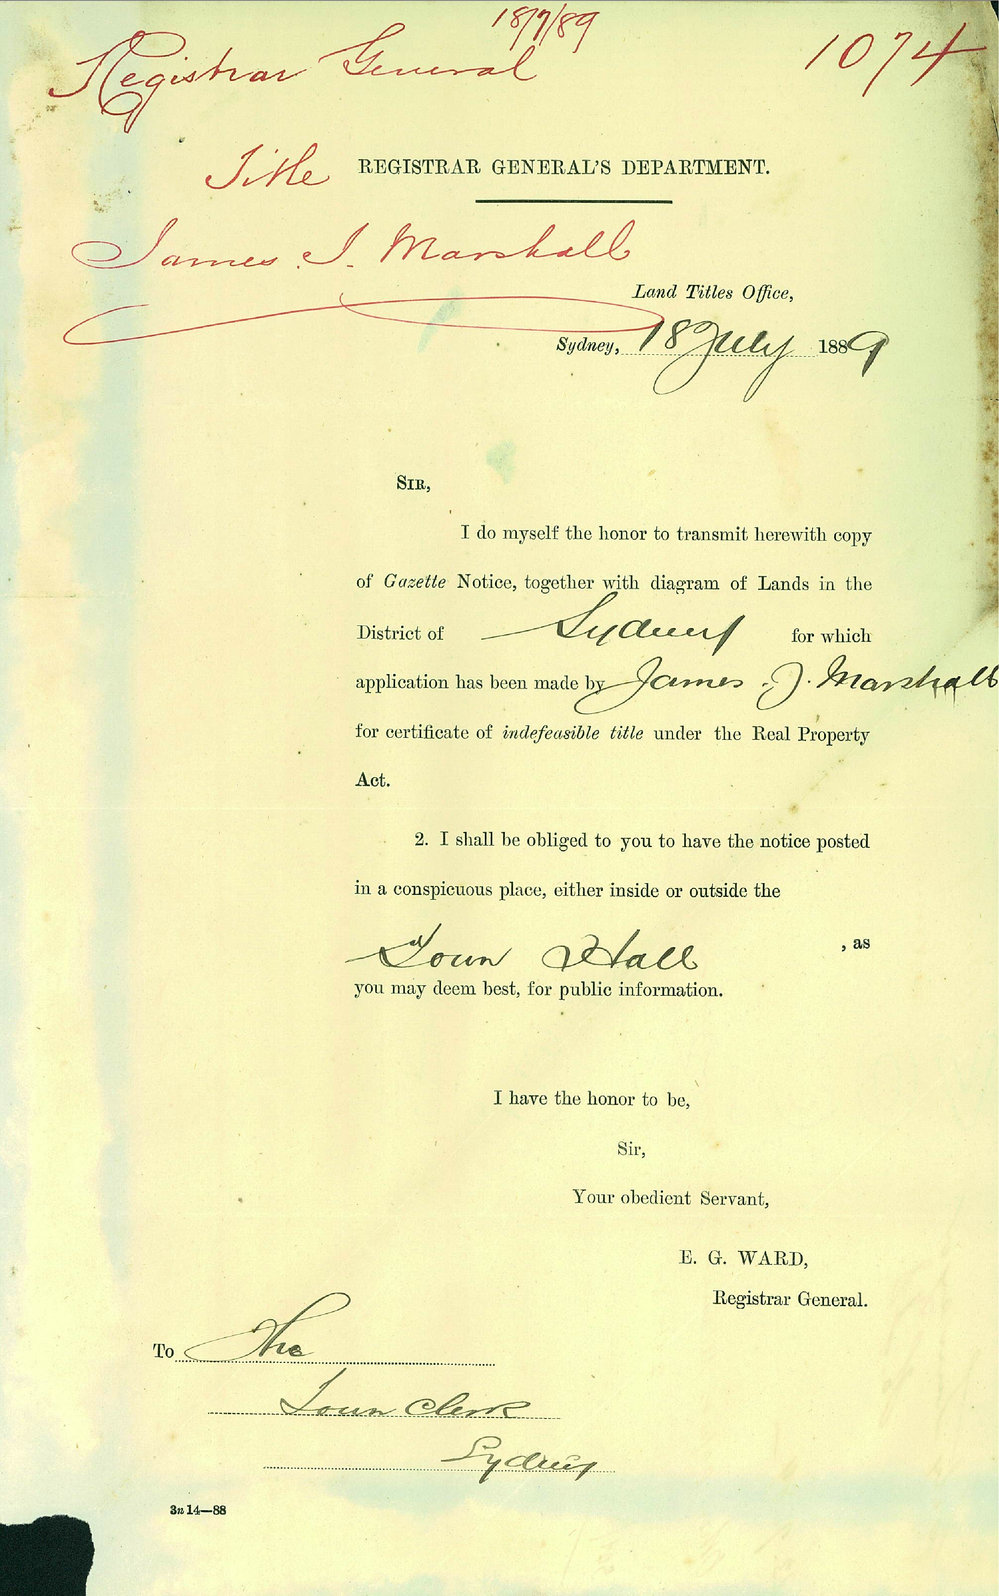 18/7/89
Registrar General
1074
Title
REGISTRAR GENERAL'S DEPARTMENT.
James J. Marshall
Land Titles Office,
Sydney, 18 July 1889
SIR,
I do myself the honor to transmit herewith copy
of Gazette Notice, together with diagram of Lands in the
District of Sydney for which
application has been made by James J. Marshall
for certificate of indefeasible title under the Real Property
Act.
2. I shall be obliged to you to have the notice posted
in a conspicuous place, either inside or outside the
Town Hall , as
you may deem best, for public information.
I have the honor to be,
Sir,
Your obedient Servant,
E. G. WARD,
Registrar General.
To The
Town Clerk
Sydney
3n 14—88